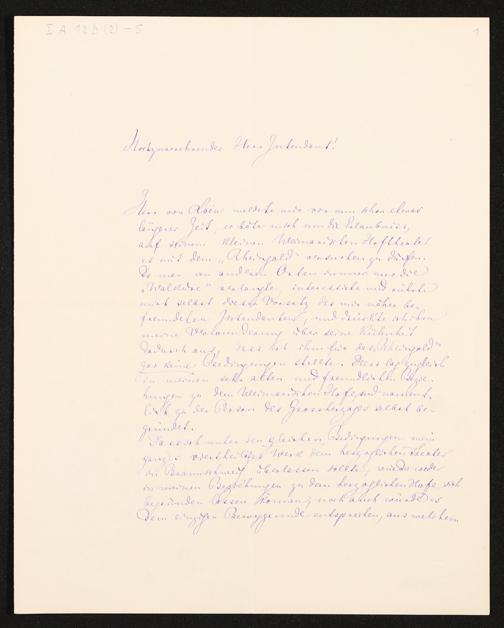 I A 12 b (2) – 5
1
Hochzuverehrender Herr Intendant!
Herr von Loën meldete mir vor nun schon etwas
längerer Zeit, er bäte mich um die Erlaubniss,
auf seinem kleinen Weimarischen Hoftheater
es mit dem „Rheingold" versuchen zu dürfen.
Da man an anderen Orten immer nur die
„Walküre" verlangte, interessirte und rührte
mich selbst dieser Vorsatz des mir näher be-
freundeten Intendanten, und drückte ich ihm
meine Verwunderung über seine Kühnheit
dadurch aus, dass ich ihm für das „Rheingold"
gar keine Bedingungen stellte. Diess lag zugleich
in meinen sehr alten und freundlichen Bezie-
hungen zu dem Weimarischen Hofe, und nament-
lich zu der Person des Grossherzogs selbst be-
gründet.
Dass ich unter den gleichen Bedingungen mein
ganzes viertheiliges Werk dem herzoglichen Theater
in Braunschweig überlassen sollte, würde weder
in meinen Beziehungen zu dem herzoglichen Hofe sich
begründen lassen können, noch auch würde es
dem einzigen Beweggrunde entsprechen, aus welchem